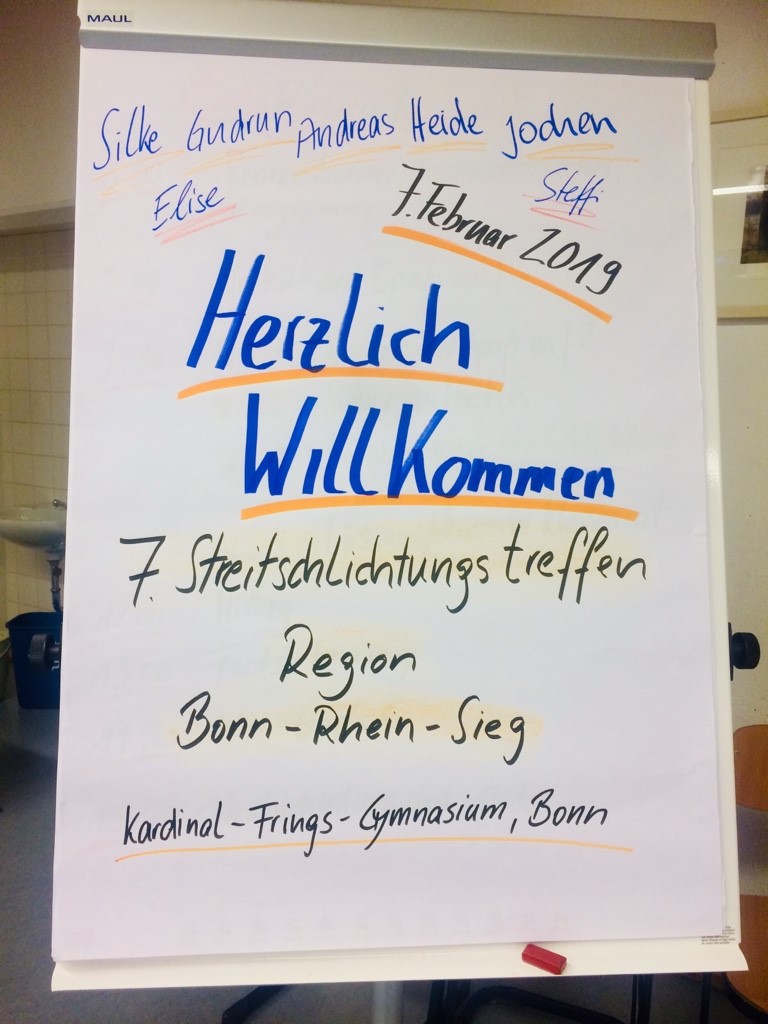 MAUL
Silke Gudrun Andreas Heide Jochen
Elise Steffi
7. Februar 2019
Herzlich
Willkommen
7. Streitschlichtungstreffen
Region
Bonn-Rhein-Sieg
Kardinal-Frings-Gymnasium, Bonn